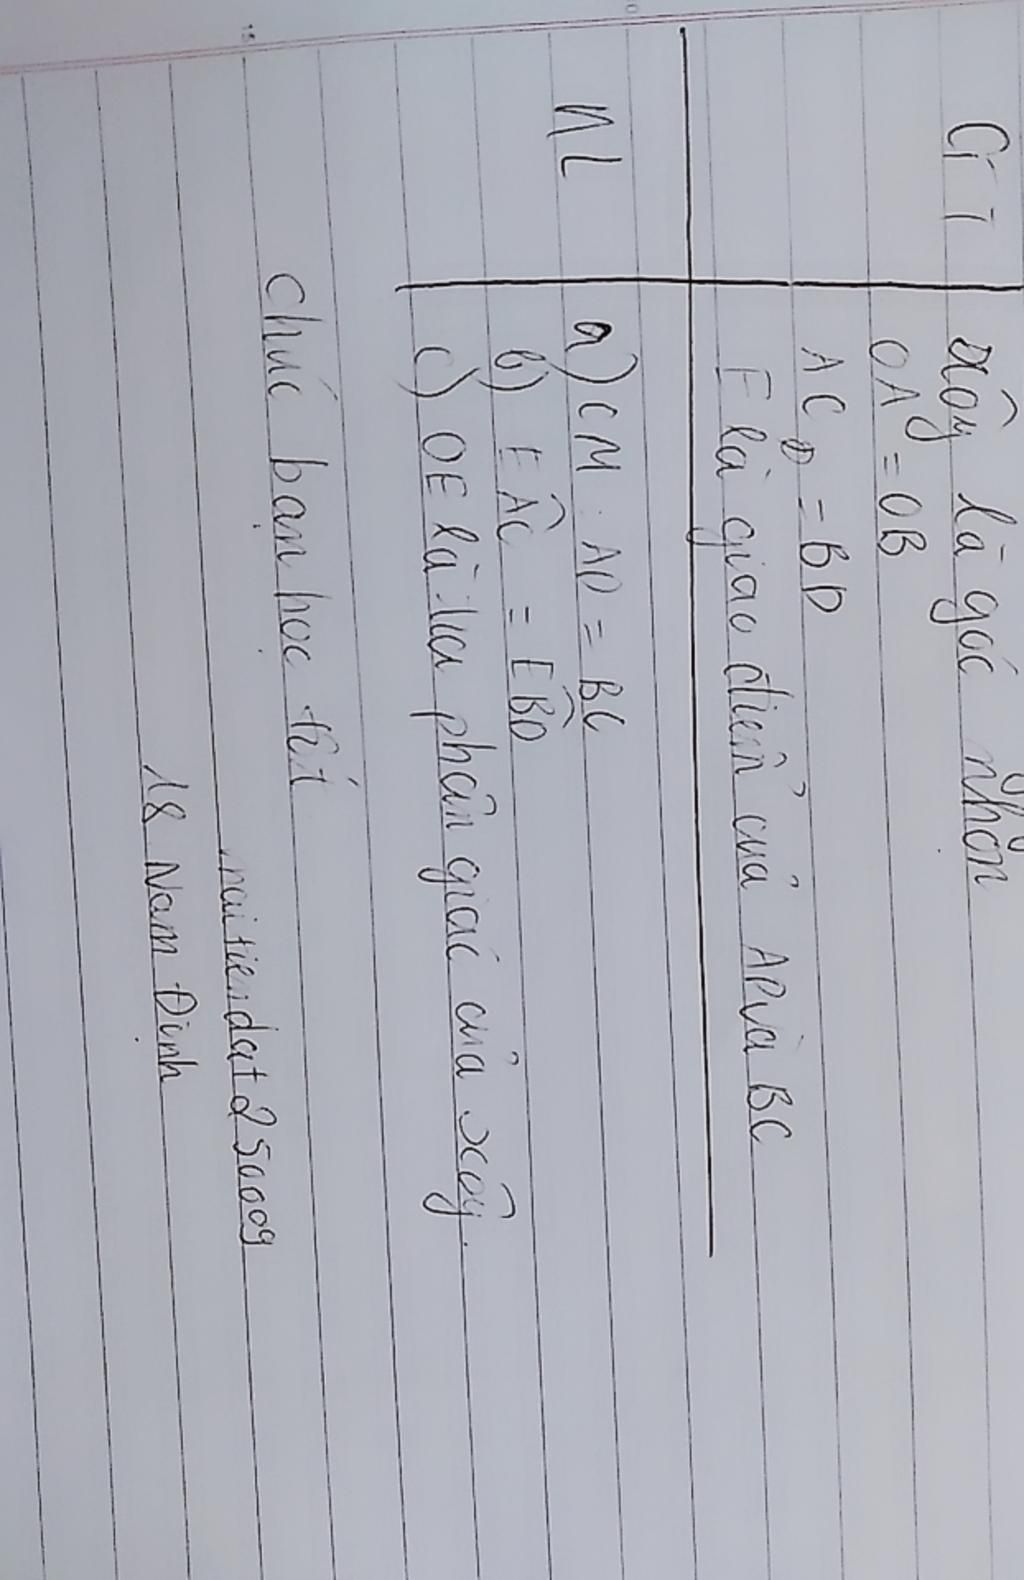 GT
xÔy là góc nhọn
OA = OB
AC = BD
E là giao điểm của AD và BC
KL
a) CM: AD = BC
b) EÂC = EB̂D
c) OE là tia phân giác của xÔy.
Chúc bạn học tốt
maitiendat25009
18 Nam Định